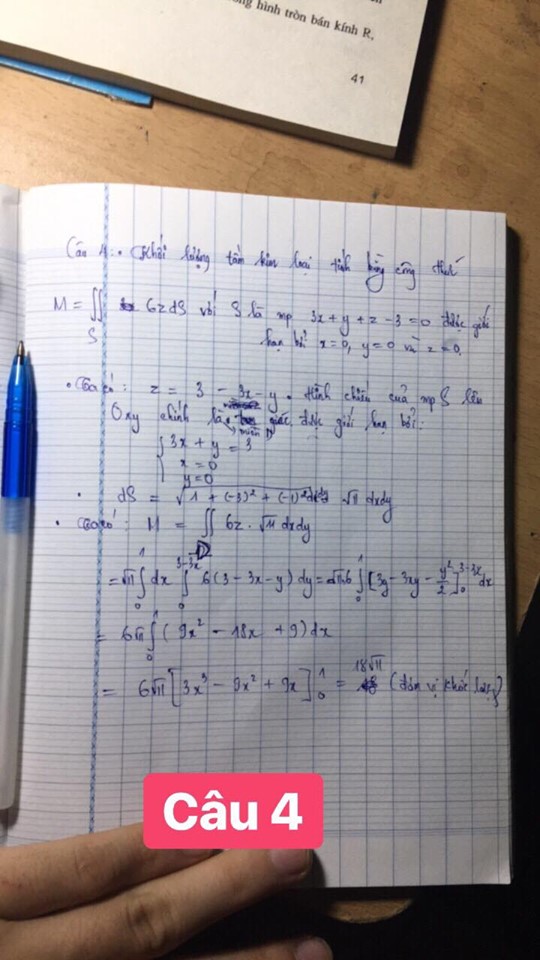 hình tròn bán kính R,
41
Câu 4: • Khối lượng tấm kim loại tính bằng công thức
M = ∬ 6z dS với S là mp 3x + y + z - 3 = 0 được giới
S
hạn bởi x = 0, y = 0 và z = 0.
• Ta có: z = 3 - 3x - y. Hình chiếu của mp S lên
Oxy chính là được giới hạn bởi:
miền D
3x + y = 3
x = 0
y = 0
• dS = √1 + (-3)² + (-1)² dxdy √11 dxdy
• Ta có: M = ∬ 6z. √11 dxdy
D
= √11 ∫₀¹ dx ∫₀³⁻³ˣ 6(3 - 3x - y) dy = √11.6 ∫₀¹ [3y - 3xy - y²/2]₀³⁻³ˣ dx
= 6√11 ∫₀¹ (9x² - 18x + 9) dx
= 6√11 [3x³ - 9x² + 9x]₀¹ = 18√11 (đơn vị khối lượng)
Câu 4